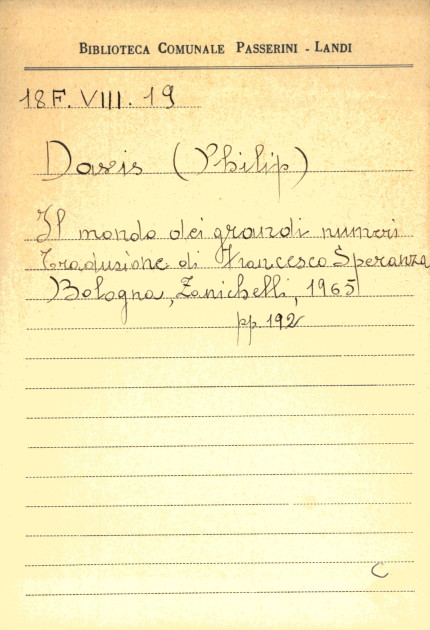 BIBLIOTECA COMUNALE PASSERINI - LANDI
18 F. VIII. 19
Davis (Philip)
Il mondo dei grandi numeri
Traduzione di Francesco Speranza
Bologna, Zanichelli, 1965
pp. 192
C